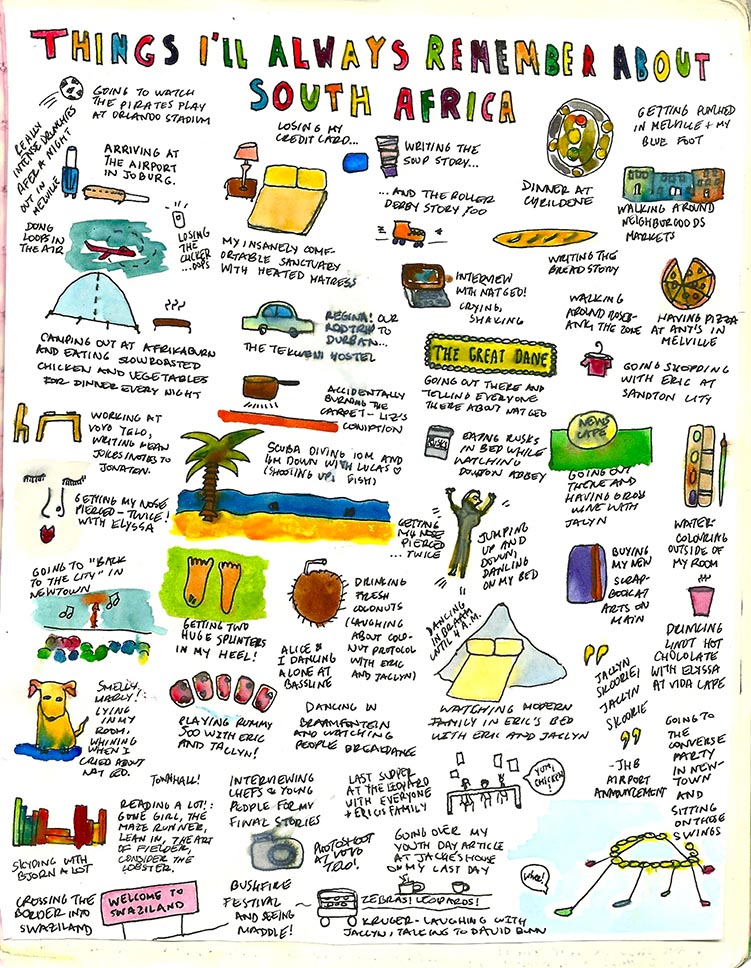 THINGS I'LL ALWAYS REMEMBER ABOUT
SOUTH AFRICA
GOING TO WATCH
THE PIRATES PLAY
AT ORLANDO STADIUM
REALLY
INTENSE
AFTER A NIGHT
OUT IN
MELVILLE
ARRIVING AT
THE AIRPORT
IN JOBURG.
LOSING MY
CREDIT CARD...
WRITING THE
SOUP STORY...
...AND THE ROLLER
DERBY STORY TOO
DINNER AT
CYRILDENE
GETTING PUNCHED
IN MELVILLE + MY
BLUE FOOT
WALKING AROUND
NEIGHBURGOODS
MARKETS
DOING
LOOPS IN
THE AIR
LOSING
THE
CLICKER
...OOPS
MY INSANELY COMF-
ORTABLE SANCTUARY
WITH HEATED MATRESS
WRITING THE
BREAD STORY
INTERVIEW
WITH NAT GEO!
CRYING,
SHAKING
WALKING
AROUND ROSEB-
ANK, THE ZONE
HAVING PIZZA
AT ANT'S IN
MELVILLE
CAMPING OUT AT AFRIKABURN
AND EATING SLOW ROASTED
CHICKEN AND VEGETABLES
FOR DINNER EVERY NIGHT
REGINA! OUR
ROADTRIP TO
DURBAN...
THE TEKWENI HOSTEL
THE GREAT DANE
GOING OUT THERE AND
TELLING EVERYONE
THERE ABOUT NAT GEO
GOING SHOPPING
WITH ERIC AT
SANDTON CITY
ACCIDENTALLY
BURNING THE
CARPET - LIZ'S
CONIPTION
WORKING AT
VOVO TELO,
WRITING MEAN
JOKES/NOTES TO
JONATON.
SCUBA DIVING 10M AND
4M DOWN WITH LUCAS ♡
(SHOOTING UP, FISH)
RUSKS
EATING RUSKS
IN BED WHILE
WATCHING
DOWNTON ABBEY
NEWS
CAFE
GOING OUT
THERE AND
HAVING GROSS
WINE WITH
JACLYN
WATER
COLOURING
OUTSIDE OF
MY ROOM
GETTING MY NOSE
PIERCED - TWICE!
WITH ELYSSA
GETTING
MY NOSE
PIERCED
... TWICE
JUMPING
UP AND
DOWN,
DANCING
ON MY BED
BUYING
MY NEW
SCRAP-
BOOK AT
ARTS ON
MAIN
GOING TO "BACK
TO THE CITY" IN
NEWTOWN
GETTING TWO
HUGE SPLINTERS
IN MY HEEL!
DRINKING
FRESH
COCONUTS
(LAUGHING
ABOUT COCO-
NUT PROTOCOL
WITH ERIC
AND JACLYN)
ALICE &
I DANCING
ALONE AT
BASSLINE
DANCING
IN BRAAM
UNTIL 4 A.M.
DRINKING
LINDT HOT
CHOCOLATE
WITH ELYSSA
AT VIDA CAFE
SMELLY
MARLY!
LYING
IN MY
ROOM,
WHINING
WHEN I
CRIED ABOUT
NAT GEO.
PLAYING RUMMY
500 WITH ERIC
AND JACLYN!
DANCING IN
BRAAMFONTEIN
AND WATCHING
PEOPLE BREAKDANCE
WATCHING MODERN
FAMILY IN ERIC'S BED
WITH ERIC AND JACLYN
"
JACLYN
SKOORIE!
JACLYN
SKOORIE
"
-JHB
AIRPORT
ANNOUNCEMENT
GOING TO
THE
CONVERSE
PARTY
IN NEW-
TOWN
AND
SITTING
ON THOSE
SWINGS
TOWNHALL!
READING A LOT!:
GONE GIRL, THE
MAZE RUNNER,
LEAN IN, THE ART
OF FIELDING,
CONSIDER THE
LOBSTER.
INTERVIEWING
CHEFS & YOUNG
PEOPLE FOR MY
FINAL STORIES
LAST SUPPER
AT THE LEOPARD
WITH EVERYONE
+ ERIC'S FAMILY
YUM,
CHICKEN!
SKYPING WITH
BJORN A LOT
PHOTOSHOOT
AT VOVO
TELO!
GOING OVER MY
YOUTH DAY ARTICLE
AT JACKIE'S HOUSE
ON MY LAST DAY
WHEE!
CROSSING THE
BORDER INTO
SWAZILAND
WELCOME TO
SWAZILAND
BUSHFIRE
FESTIVAL
AND SEEING
MADDIE!
ZEBRAS! LEOPARDS!
KRUGER - LAUGHING WITH
JACLYN, TALKING TO DAVID BUNN